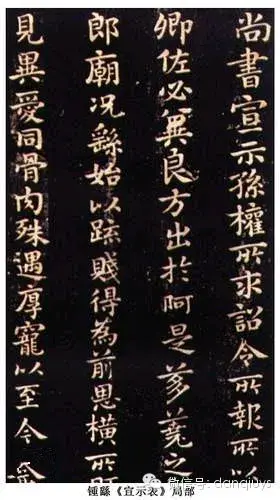 尚書宣示孫權所求詔令所報所以
卿佐必異良方出於阿是芻蕘之
郎廟況繇始以疏賤得為前恩橫所
見異愛同骨肉殊遇厚寵以至今
鍾繇《宣示表》局部
微信号: danqiuys